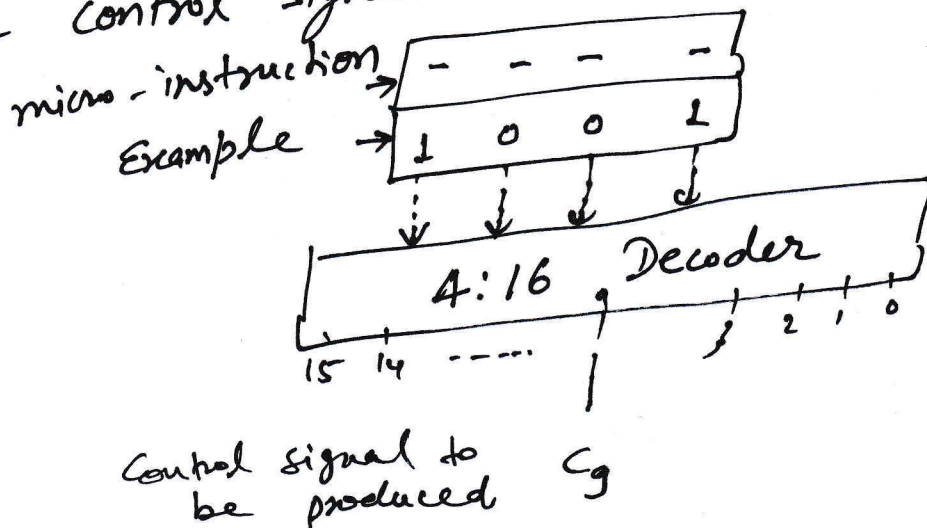 - Control
micro-instruction → - - - -
Example → 1 0 0 1
4:16 Decoder
15 14 ------ 9 3 2 1 0
Control signal to C9
be produced